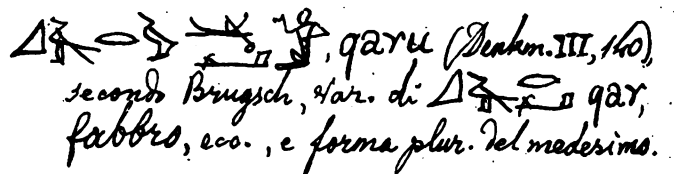 , qaru (Denkm. III, 140),
secondo Brugsch, var. di qar,
fabbro, ecc., e forma plur. del medesimo.